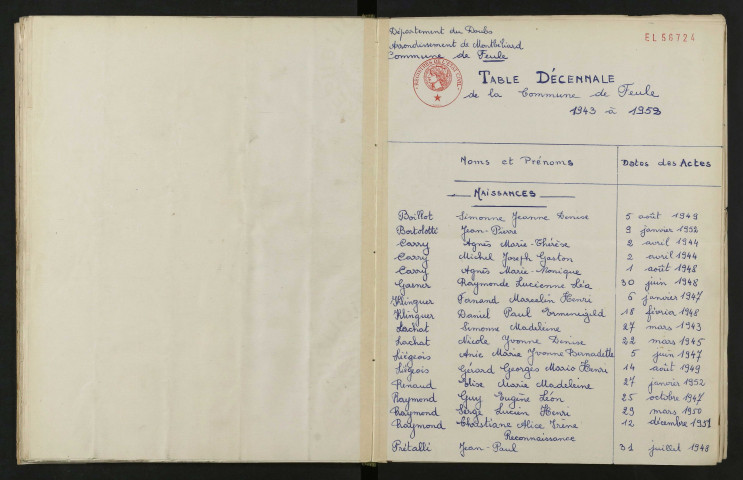 Département du Doubs
Arrondissement de Montbéliard
Commune de Feule
EL 56724
TABLE DÉCENNALE
de la Commune de Feule
1943 à 1953
Noms et Prénoms Dates des Actes
NAISSANCES
Boillot Simonne Jeanne Denise 5 août 1949
Bortolotti Jean-Pierre 9 janvier 1952
Carry Agnès Marie-Thérèse 2 avril 1944
Carry Michel Joseph Gaston 2 avril 1944
Carry Agnès Marie-Monique 1 août 1948
Garner Raymonde Lucienne Léa 30 juin 1948
Klinguer Fernand Marcelin Henri 6 janvier 1947
Klinguer Daniel Paul Ermenegild 18 février 1948
Lachat Simonne Madeleine 27 mars 1943
Lachat Nicole Yvonne Denise 22 mars 1945
Liégeois Anie Marie Yvonne Bernadette 5 juin 1947
Liégeois Gérard Georges Mario Henri 14 août 1949
Renaud Elise Marie Madeleine 27 janvier 1952
Raymond Guy Eugène Léon 25 octobre 1947
Raymond Serge Lucien Henri 29 mars 1950
Raymond Christiane Alice Irène 12 décembre 1951
Reconnaissance
Prétalli Jean-Paul 31 juillet 1948